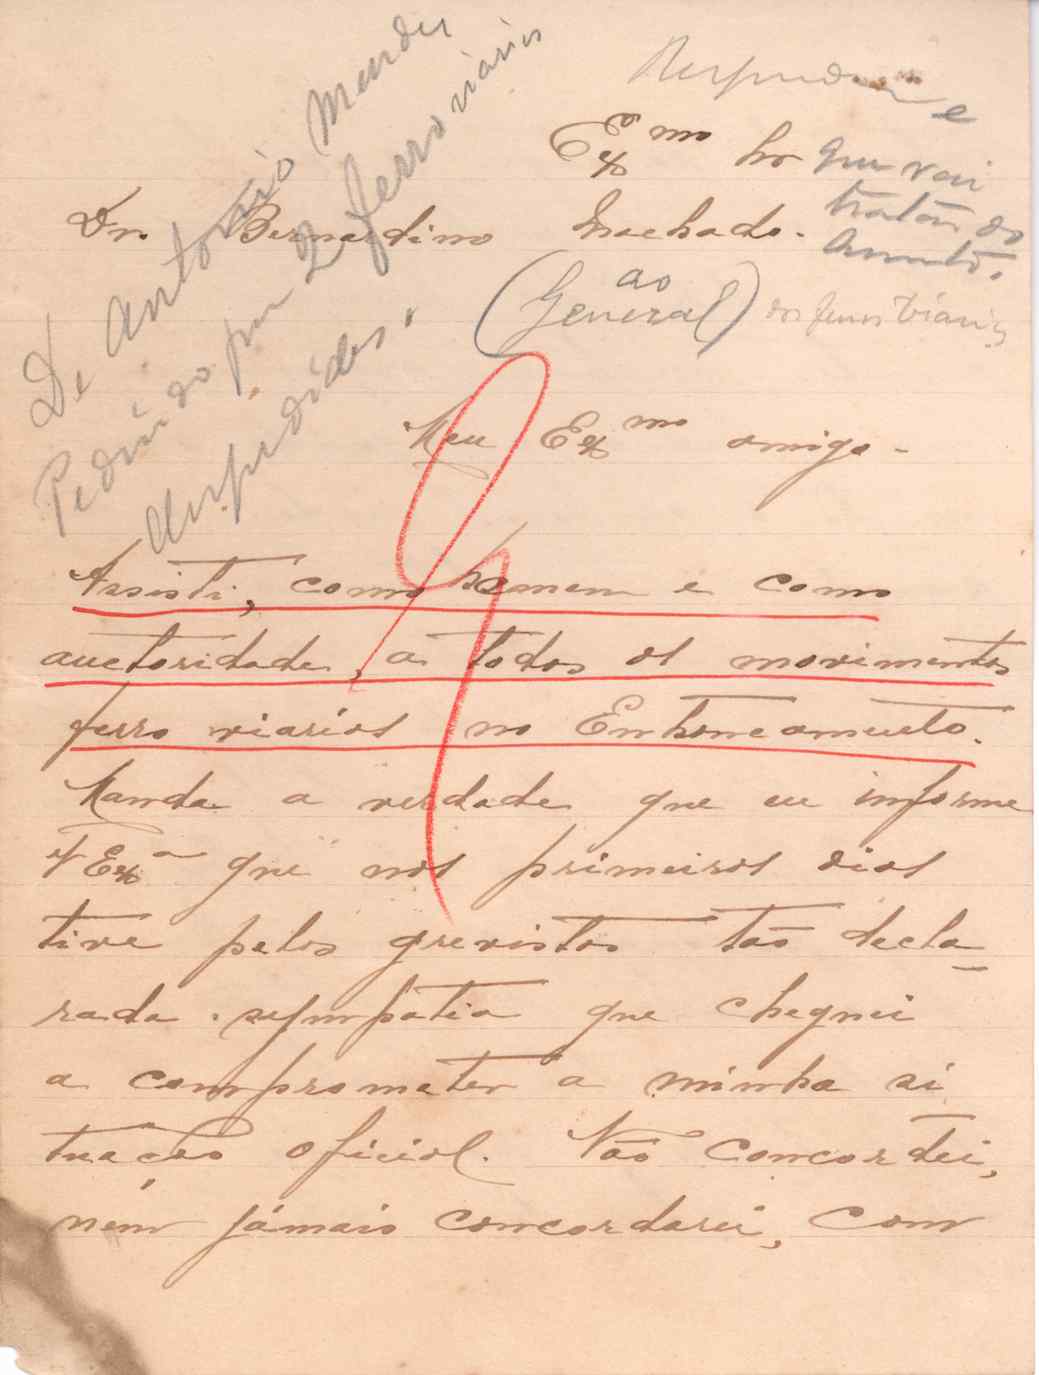 De Antonio Mendes
Pedindo por 2 ferroviarios
despedidos.
Respondeu e
que vai
tratar do
assunto.
Exmo Snr
Dr. Bernardino Machado.
(ao General)
Meu Exmo amigo -
Assisti, como homem e como
auctoridade, a todos os movimentos
ferro viarios no Entroncamento.
Manda a verdade que eu informe
V Exa que nos primeiros dias
tive pelos grevistas tão decla-
rada sympatia que cheguei
a comprometer a minha si
tuação oficial. Não concordei,
nem jámais concordarei, com